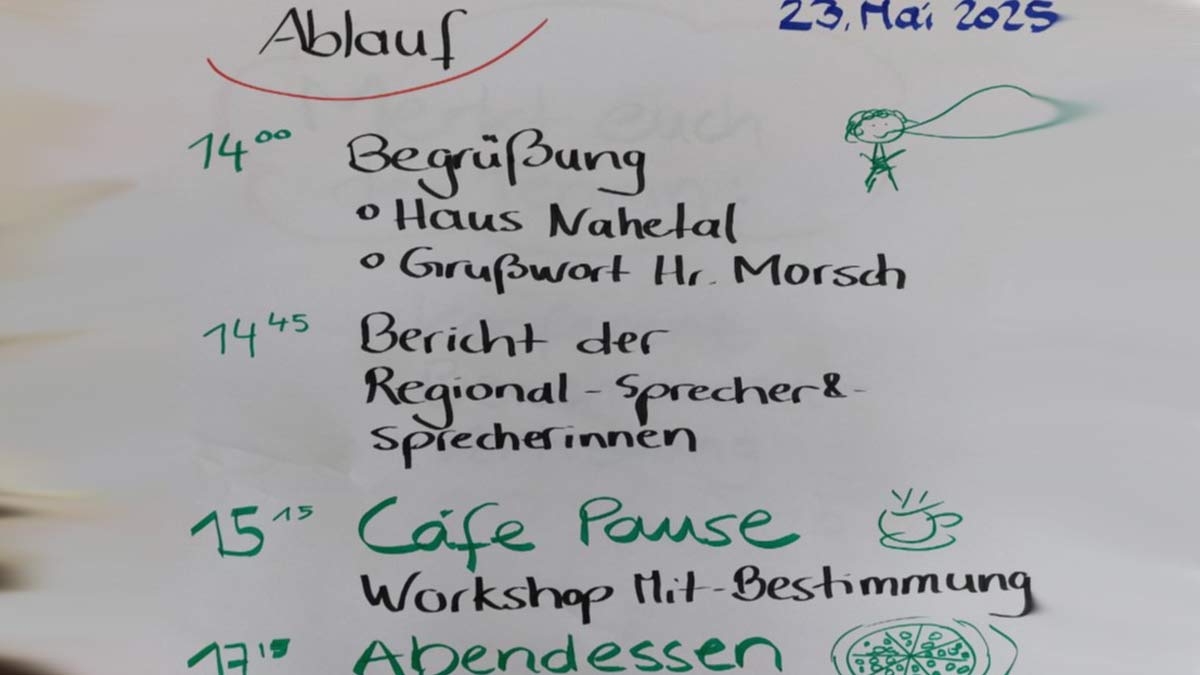 Ablauf 23. Mai 2025
14 00 Begrüßung
o Haus Nahetal
o Grußwort Hr. Morsch
14 45 Bericht der
Regional - Sprecher & -
Sprecherinnen
15 15 Cáfe Pause
Workshop Mit-Bestimmung
17 15 Abendessen